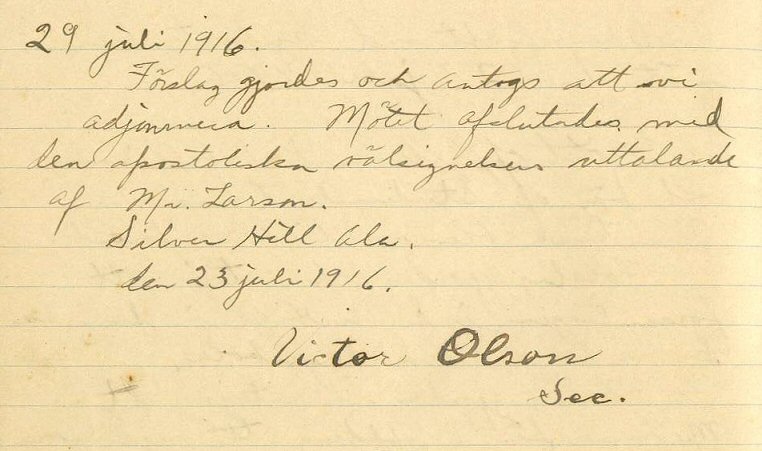 29 juli 1916.
Förslag gjordes och antogs att vi
adjournera. Mötet afslutades med
den apostoliska välsignelsen uttalande
af Mr. Larson.
Silver Hill Ala.
den 23 juli 1916.
Victor Olson
Sec.